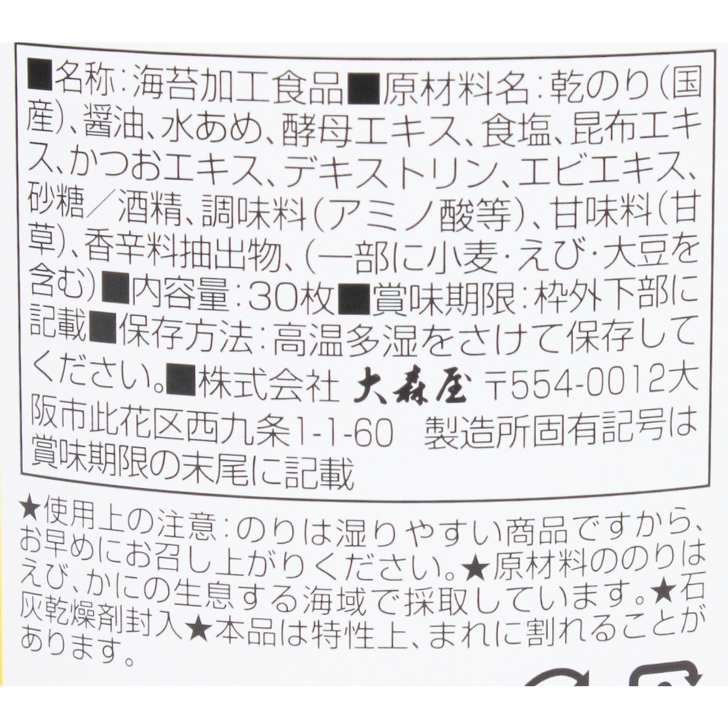 ■名称：海苔加工食品■原材料名：乾のり（国
産）、醤油、水あめ、酵母エキス、食塩、昆布エキ
ス、かつおエキス、デキストリン、エビエキス、
砂糖／酒精、調味料（アミノ酸等）、甘味料（甘
草）、香辛料抽出物、（一部に小麦・えび・大豆を
含む）■内容量：30枚■賞味期限：枠外下部に
記載■保存方法：高温多湿をさけて保存して
ください。■株式会社 大森屋 〒554-0012大
阪市此花区西九条1-1-60　製造所固有記号は
賞味期限の末尾に記載
★使用上の注意：のりは湿りやすい商品ですから、
お早めにお召し上がりください。★原材料ののりは
えび、かにの生息する海域で採取しています。★石
灰乾燥剤封入★本品は特性上、まれに割れることが
あります。